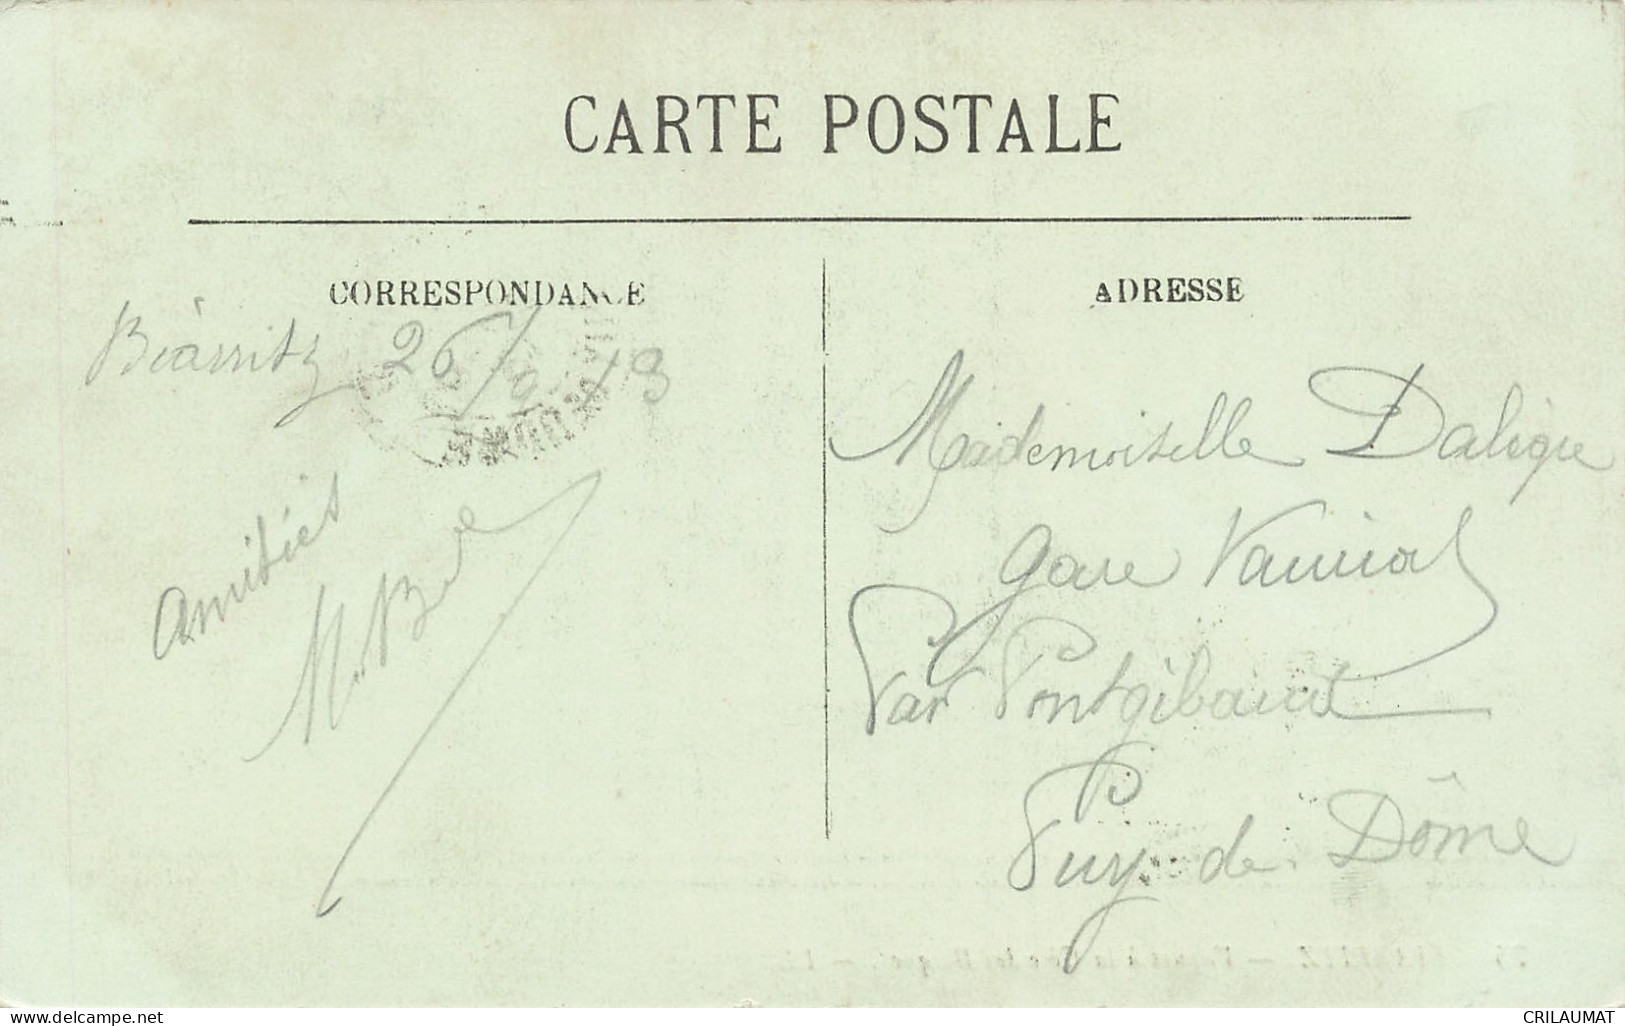 CARTE POSTALE
CORRESPONDANCE
ADRESSE
Biarritz 26/9 13
Amitiés
M. B
Mademoiselle Daleque
gare Vauriat
Par Pontgibaud
Puy de Dôme
www.delcampe.net
CRILAUMAT